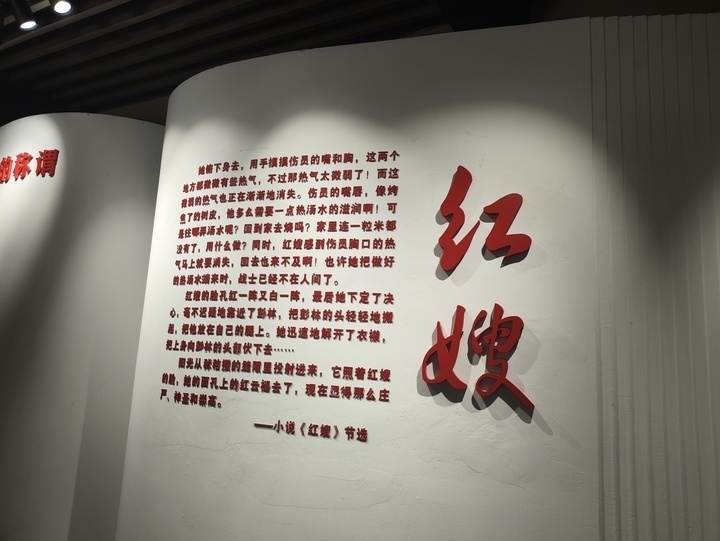 的称谓
她俯下身去，用手摸摸伤员的嘴和胸，这两个
地方都微微有些热气，不过那热气太微弱了！而这
微弱的热气也正在渐渐地消失。伤员的嘴唇，像烤
焦了的树皮，他多么需要一点热汤水的滋润啊！可
是往哪弄汤水呢？回到家去烧吗？家里连一粒米都
没有了，用什么做？同时，红嫂感到伤员胸口的热
气马上就要消失，回去也来不及啊！也许她把做好
的热汤水端来时，战士已经不在人间了。
红嫂的脸孔红一阵又白一阵，最后她下定了决
心，毫不迟疑地靠近了彭林，把彭林的头轻轻地搬
起，把他放在自己的腿上。她迅速地解开了衣襟，
把上身向彭林的头部伏下去……
阳光从秫秸棚的缝隙里投射进来，它照着红嫂
的脸，她的面孔上的红云褪去了，现在显得那么庄
严、神圣和崇高。
——小说《红嫂》节选
红嫂